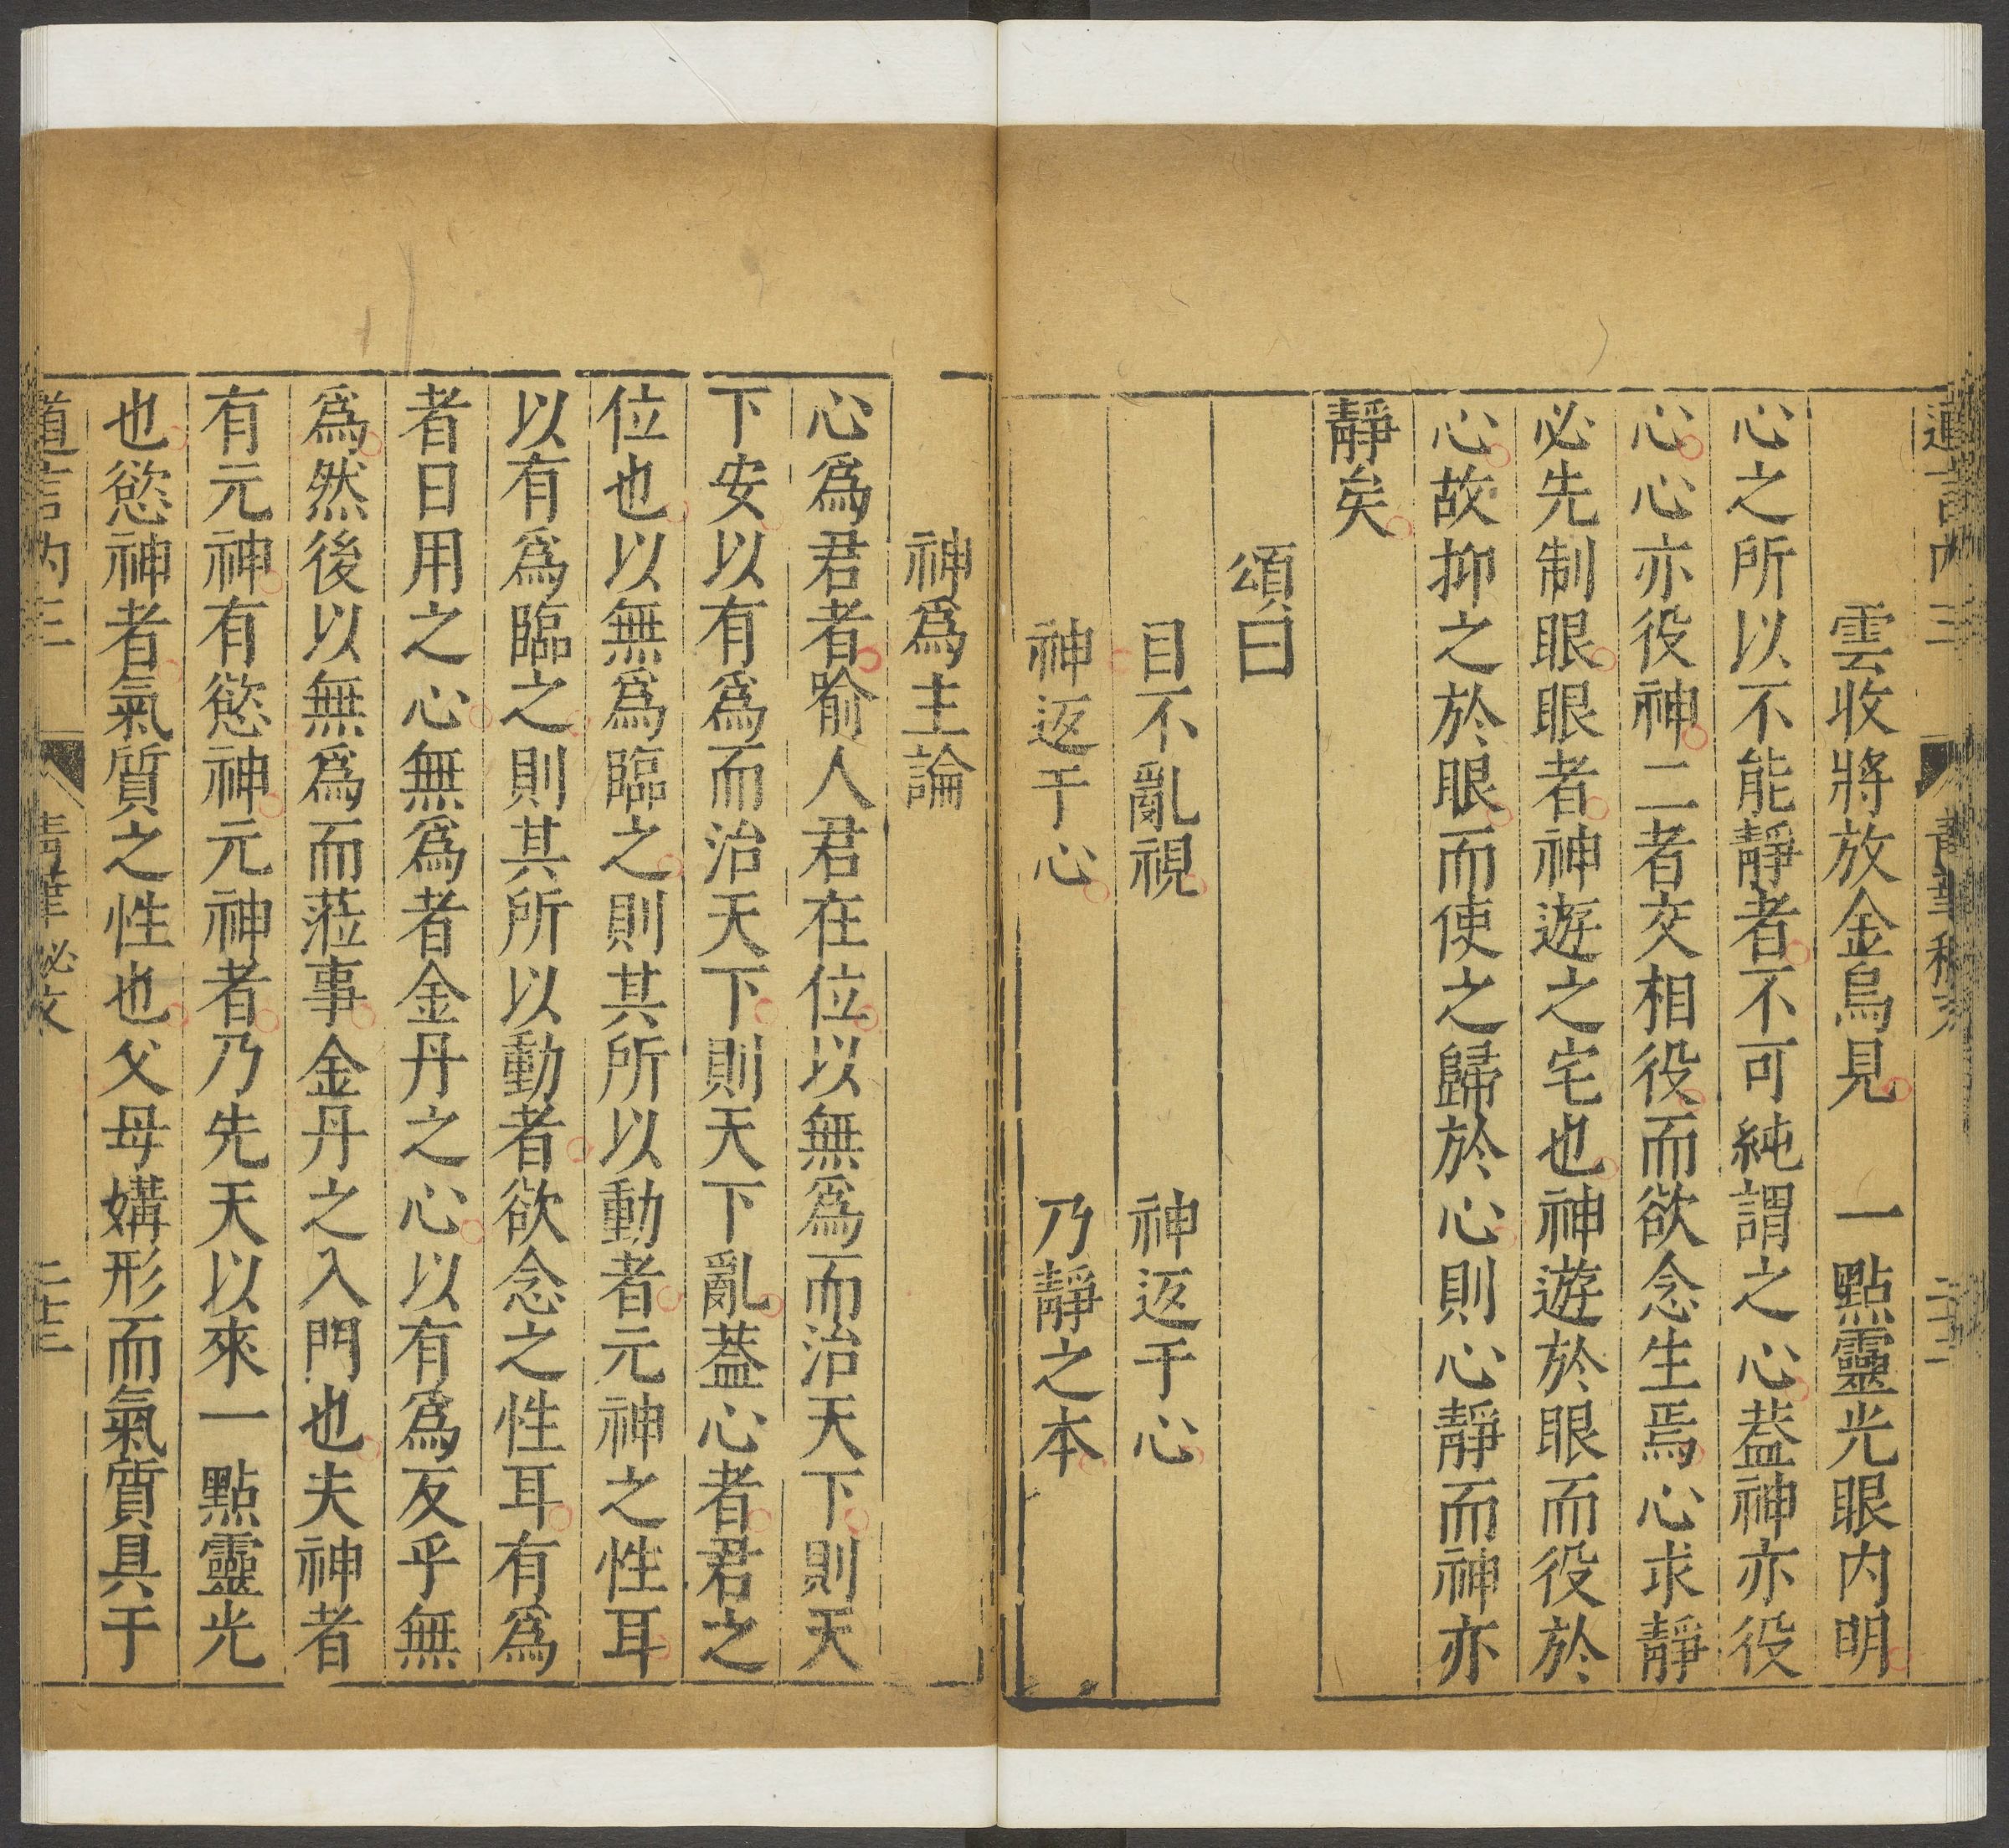 道言内三 青華秘文 二十二
雲收將放金烏見 一點靈光眼内明
心之所以不能靜者不可純謂之心葢神亦役
心心亦役神二者交相役而欲念生焉心求靜
必先制眼眼者神遊之宅也神遊於眼而役於
心故抑之於眼而使之歸於心則心靜而神亦
靜矣
頌曰
目不亂視 神返于心
神返于心 乃靜之本
神爲主論
心爲君者喻人君在位以無爲而治天下則天
下安以有爲而治天下則天下亂葢心者君之
位也以無爲臨之則其所以動者元神之性耳
以有爲臨之則其所以動者欲念之性耳有爲
者日用之心無爲者金丹之心以有爲反乎無
爲然後以無爲而蒞事金丹之入門也夫神者
有元神有慾神元神者乃先天以來一點靈光
也慾神者氣質之性也父母媾形而氣質具于
道言内三 青華秘文 二十三